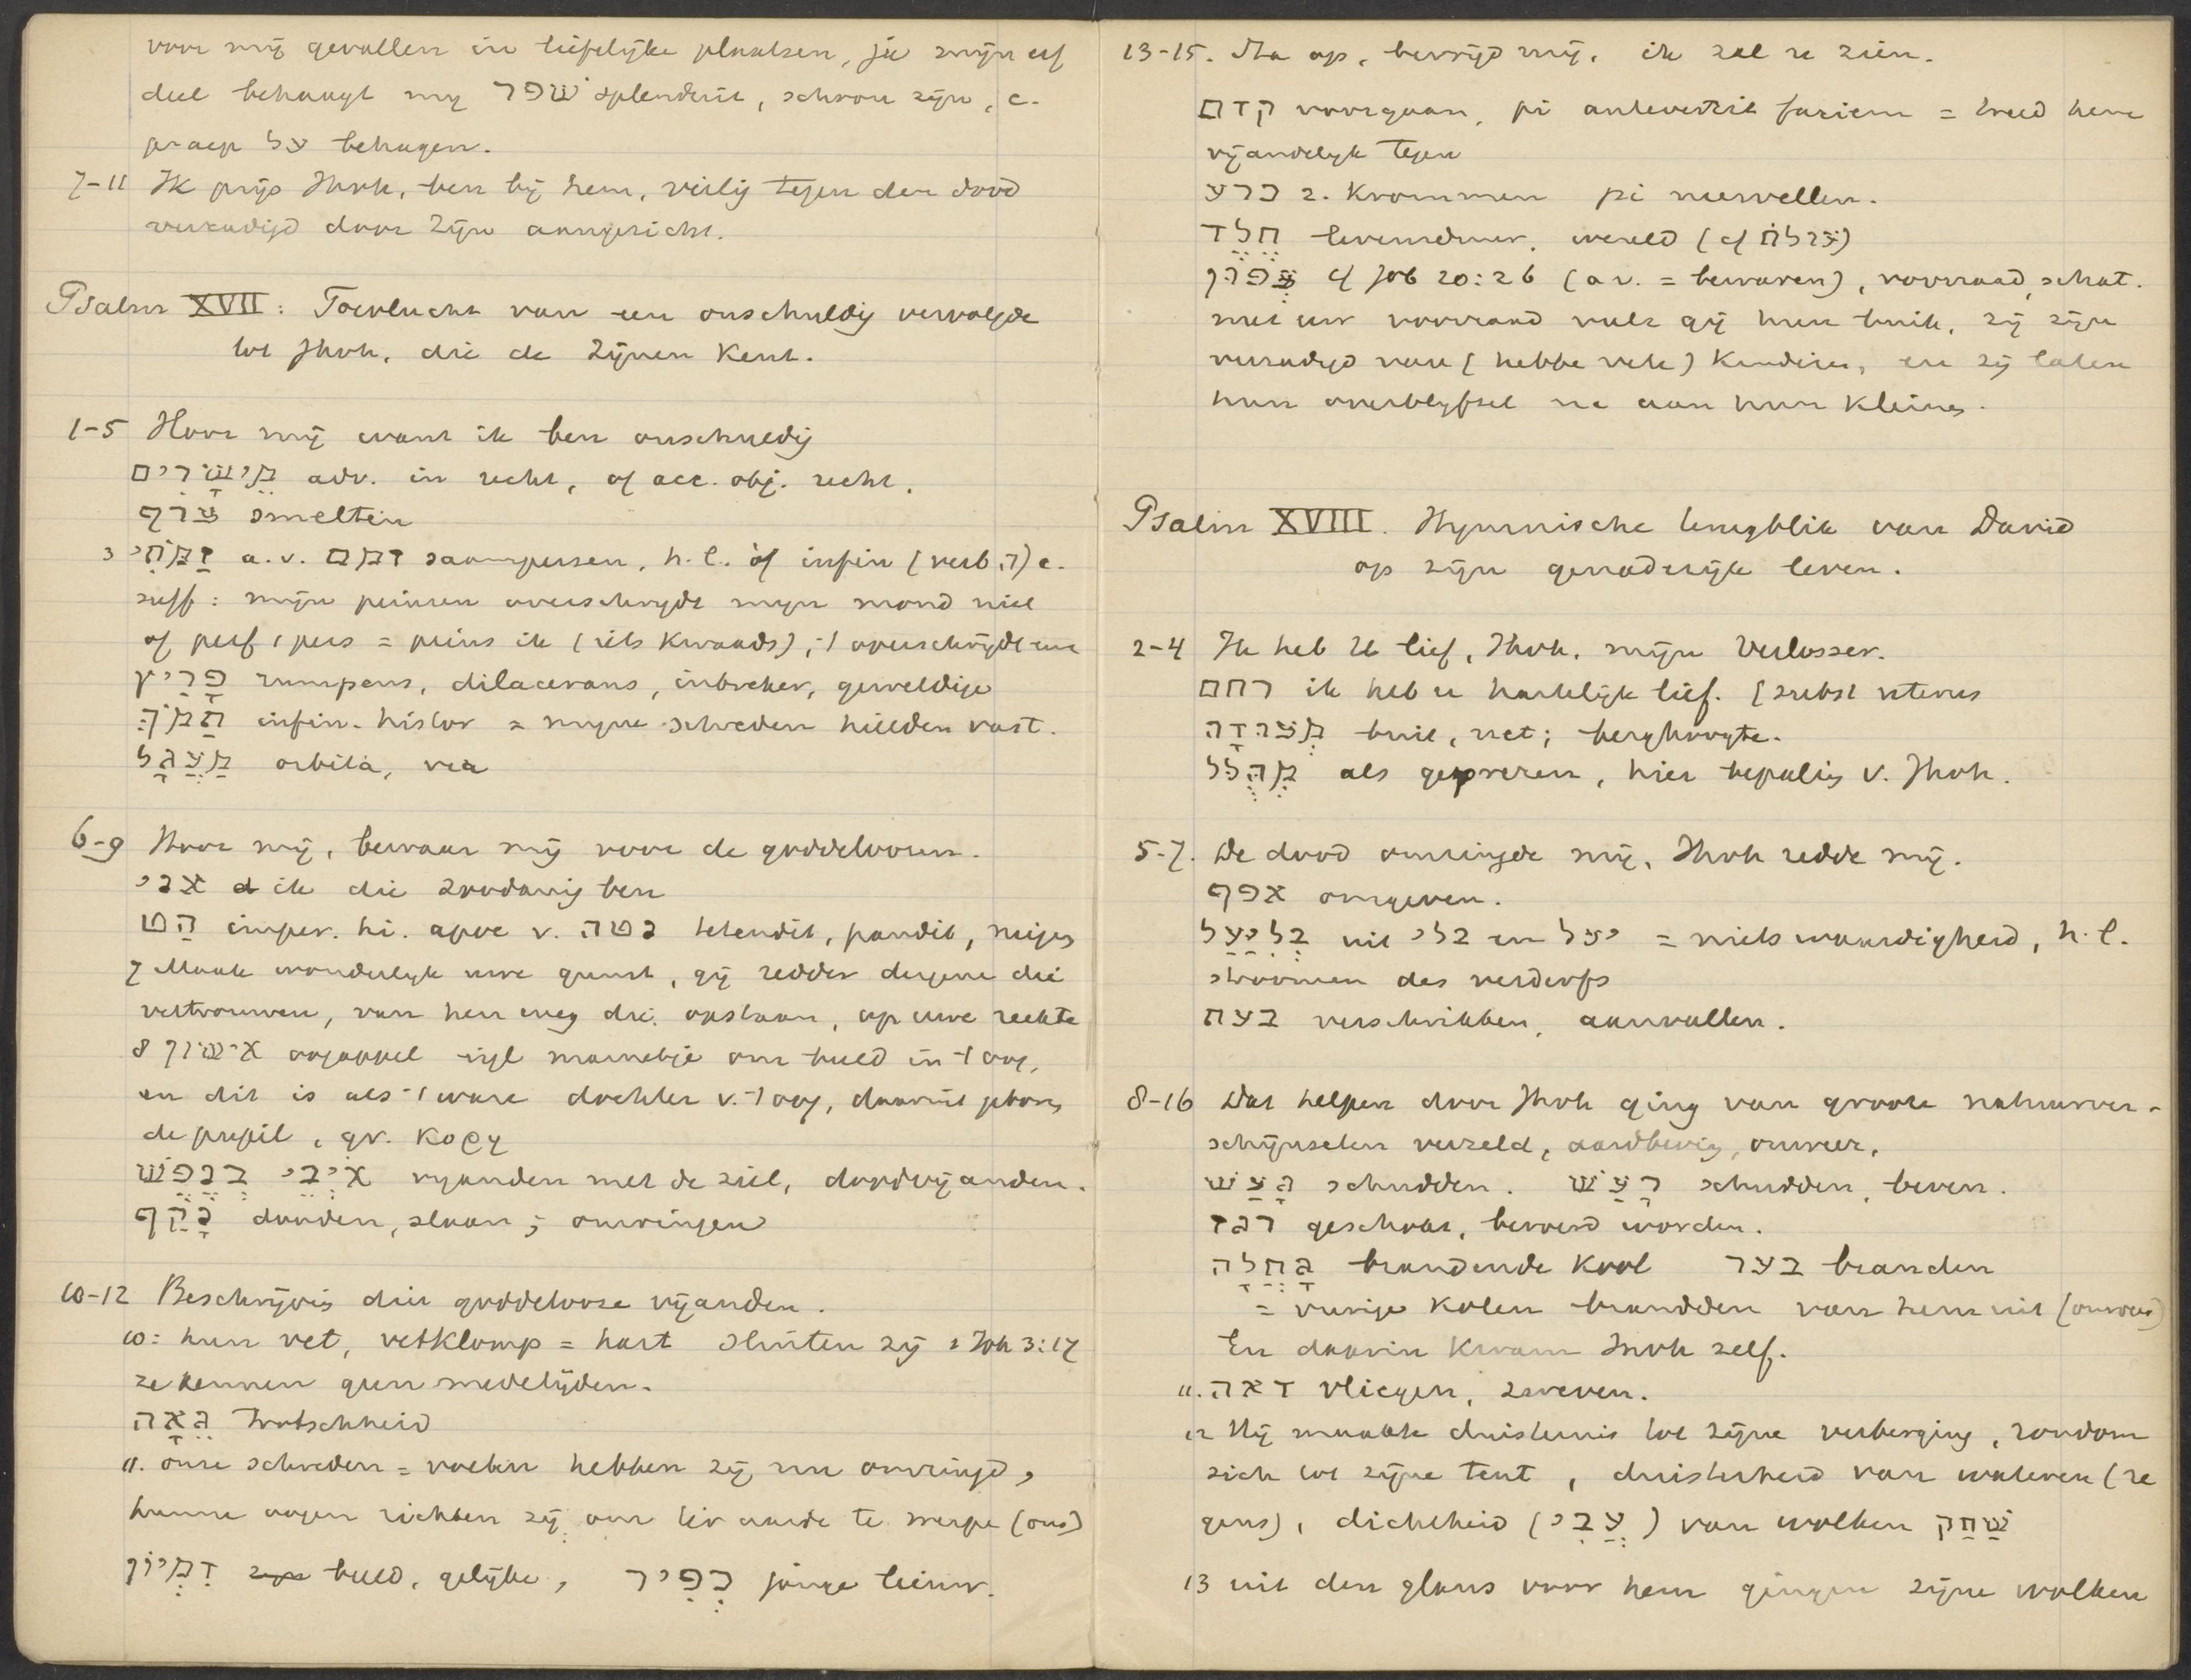 voor mij gevallen in liefelijke plaatsen, ja mijn erf
deel behaagt mij שׁפר splenduit, schoon zijn, c.
praep על behagen.
7-11 Ik prijs Jhvh, ben bij hem, veilig tegen den dood
verzadigd door Zijn aangezicht.
Psalm XVII: Toevlucht van een onschuldig vervolgde
tot Jhvh, die de Zijnen kent.
1-5 Hoor mij want ik ben onschuldig
מֵישָׁרִים adv. in recht, of acc. obj. recht.
צרף smelten
3 זַמֹּתִי a.v. זמם saampersen, h.l. òf infin (verb ה) c.
suff: mijn peinzen overschrijdt mijn mond niet
of perf 1 pers = peins ik (iets kwaads), -t overschrijdt enz
פָּרִיץ rumpens, dilacerans, inbreker, geweldige
תָּמֹךְ infin. histor = mijne schreden hielden vast.
מַעְגָּל orbita, via
6-9 Hoor mij, bewaar mij voor de goddeloozen.
אני ik die zoodanig ben
הַט imper. hi. apoc v. נטה tetendit, pandit, neigen
7 Maak wonderlijk uwe gunst, gij redder dergene die
vertrouwen, van hen weg die opstaan, op uwe rechte
8 אִישׁוֹן oogappel eigl mannetje om beeld in -t oog,
en dit is als -t ware dochter v. -t oog, daaruit
de pupil, gr. κορη
אֹיְבַי בְּנֶפֶשׁ vijanden met de ziel, doodvijanden.
נָקַף slaan; omringen
10-12 Beschrijvig dier goddelooze vijanden.
10: hun vet, vetklomp = hart sluiten zij 1 Joh 3:17
ze kennen geen medelijden.
גֵּאָה trotschheid
11. onze schreden = voeten hebben zij nu omringd,
hunne oogen richten zij om ter aarde te werpe (ons)
דִּמְיוֹן beeld, gelijke, כְּפִיר jonge leeuw.
13-15. Sta op, bevrijd mij, ik zal u zien.
קדם voorgaan, pi antevertit faciem = treed hem
vijandelijk tegen
כרע z. krommen pi nervellen.
חלד levensduur, wereld (cf עוֹלָם)
צָפוּן cf Job 20:26 (a v. = bewaren), voorraad, schat.
met uw voorraad vult gij hun buik, zij zijn
verzadigd van (hebbe vele) kinderen, en zij laten
hun overblijfsel na aan hun kleines.
Psalm XVIII. Hymnische terugblik van David
op zijn genaderijk leven.
2-4 Ik heb U lief, Jhvh, mijn Verlosser.
רחם ik heb u hartelijk lief. (subst uterus
מְצוּדָה buit, net; berghoogte.
מְהֻלָּל als geprezen, hier bepaling v. Jhvh.
5-7. De dood omringde mij, Jhvh redde mij.
אפף omgeven.
בְּלִיַּעַל uit בלי en יעל = niets waardigheid, h.l.
stroomen des verderfs
בעת verschrikken, aanvallen.
8-16 Dat helpen door Jhvh ging van groote natuurver-
schijnselen verzeld, aardbevig, onweer,
גָּעַשׁ schudden. רָעַשׁ schudden, beven.
רגז geschokt, beroerd worden.
גַּחֶלָה brandende kool בער branden
= vurige kolen brandden van hem uit (onweer)
En daarin kwam Jhvh zelf.
11. דאה vliegen, zweven.
12 Hij maakte duisternis tot zijne verberging, rondom
zich tot zijne tent, duisterheid van wateren (re
gens), dichtheid (עֲבִי) van wolken שַׁחַק
13 uit den glans voor hem gingen zijne wolken